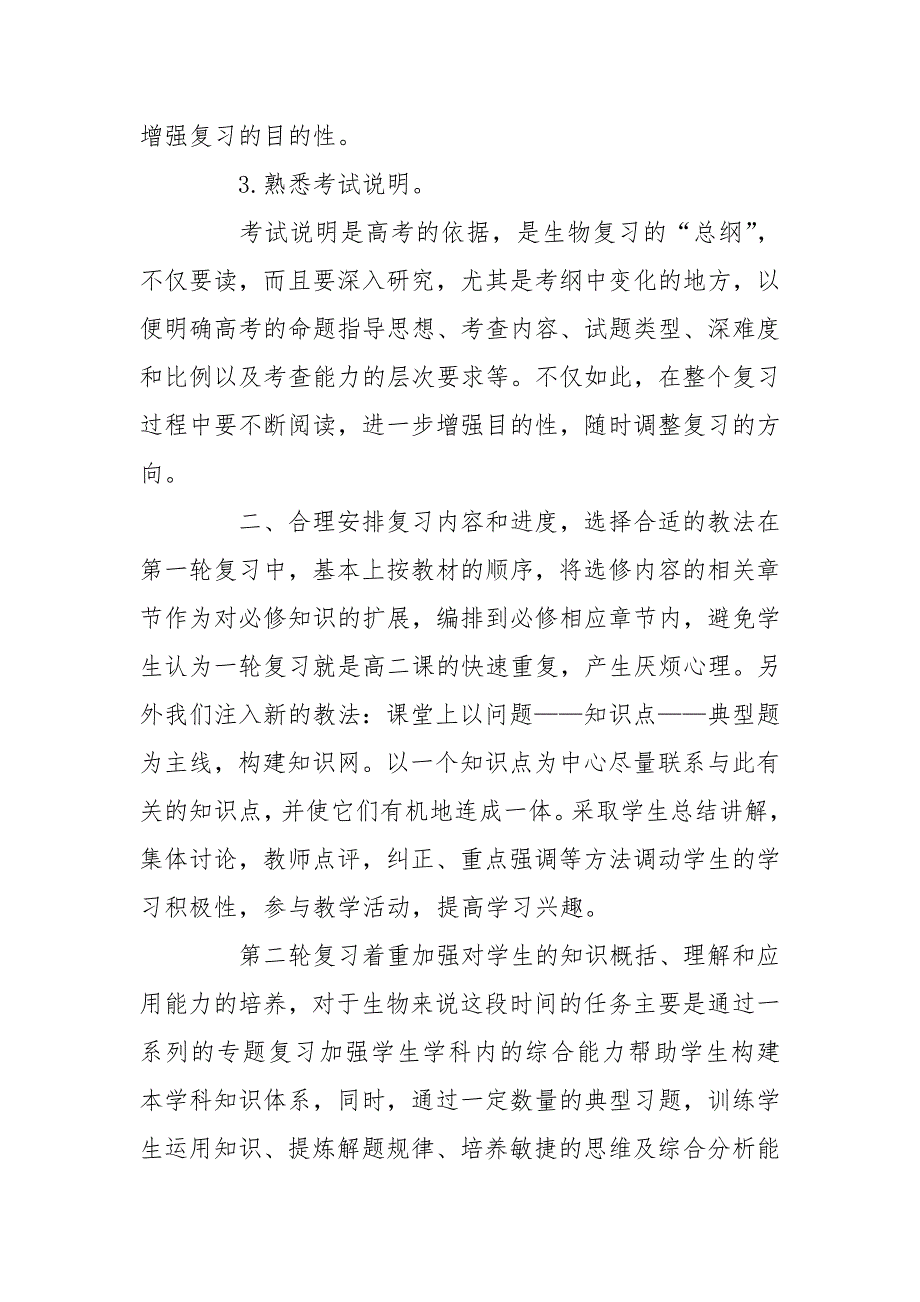 增强复习的目的性。
3.熟悉考试说明。
考试说明是高考的依据，是生物复习的“总纲”，
不仅要读，而且要深入研究，尤其是考纲中变化的地方，以
便明确高考的命题指导思想、考查内容、试题类型、深难度
和比例以及考查能力的层次要求等。不仅如此，在整个复习
过程中要不断阅读，进一步增强目的性，随时调整复习的方
向。
二、合理安排复习内容和进度，选择合适的教法在
第一轮复习中，基本上按教材的顺序，将选修内容的相关章
节作为对必修知识的扩展，编排到必修相应章节内，避免学
生认为一轮复习就是高二课的快速重复，产生厌烦心理。另
外我们注入新的教法：课堂上以问题——知识点——典型题
为主线，构建知识网。以一个知识点为中心尽量联系与此有
关的知识点，并使它们有机地连成一体。采取学生总结讲解，
集体讨论，教师点评，纠正、重点强调等方法调动学生的学
习积极性，参与教学活动，提高学习兴趣。
第二轮复习着重加强对学生的知识概括、理解和应
用能力的培养，对于生物来说这段时间的任务主要是通过一
系列的专题复习加强学生学科内的综合能力帮助学生构建
本学科知识体系，同时，通过一定数量的典型习题，训练学
生运用知识、提炼解题规律、培养敏捷的思维及综合分析能